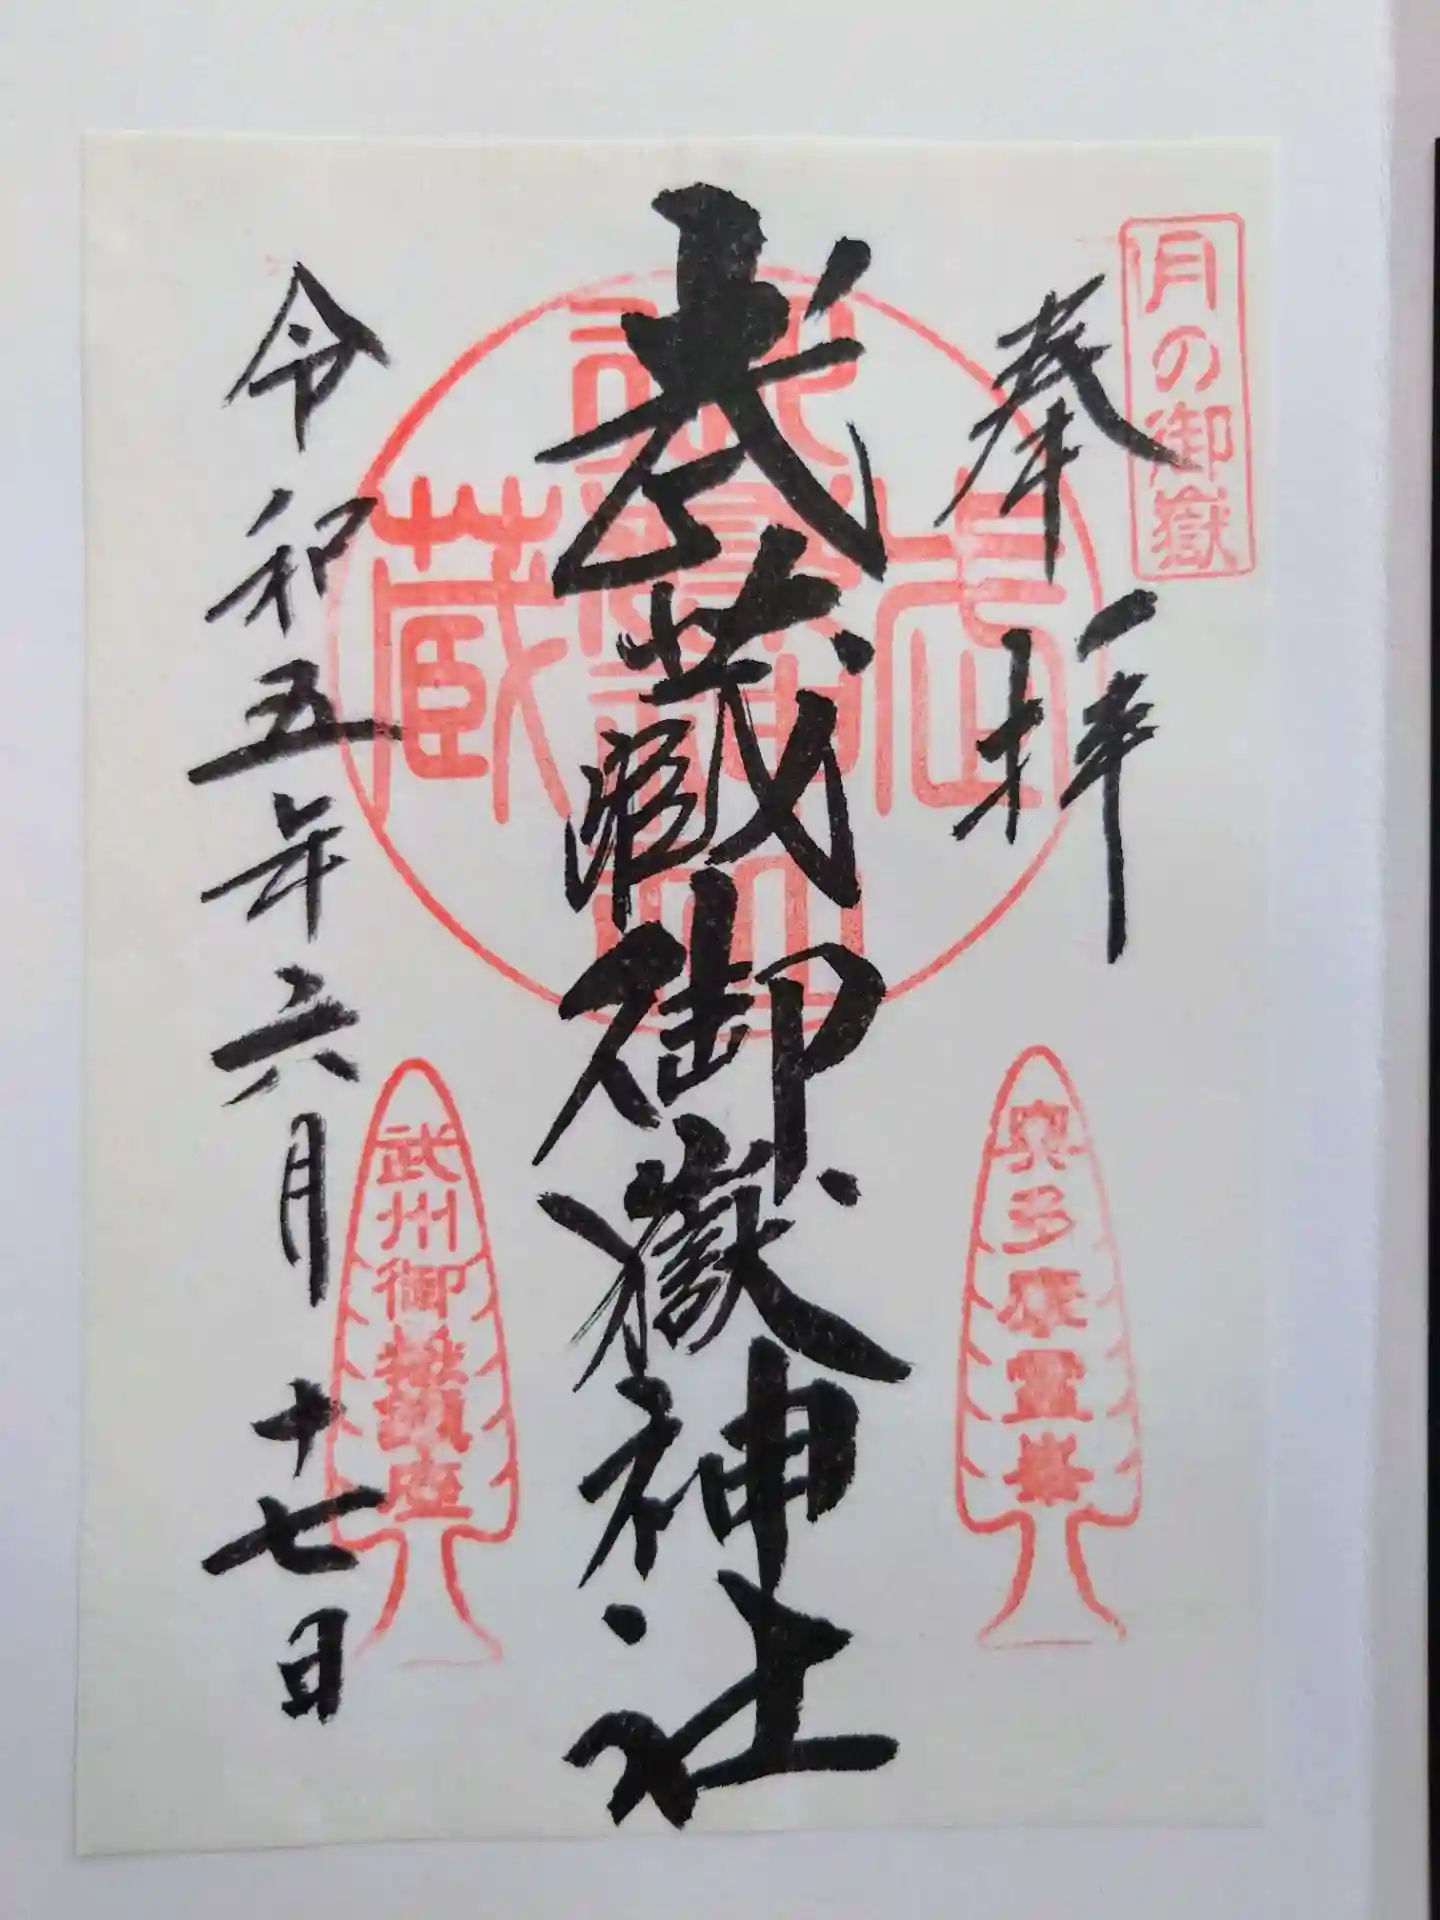 月の御嶽
奉拝
奥多摩霊峯
武蔵御嶽神社
武蔵
武州御嶽鎮座
令和五年六月十七日